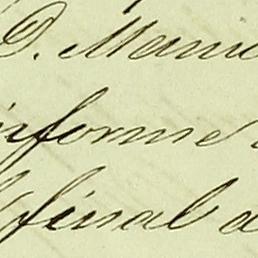 D. Manu
informe
final a